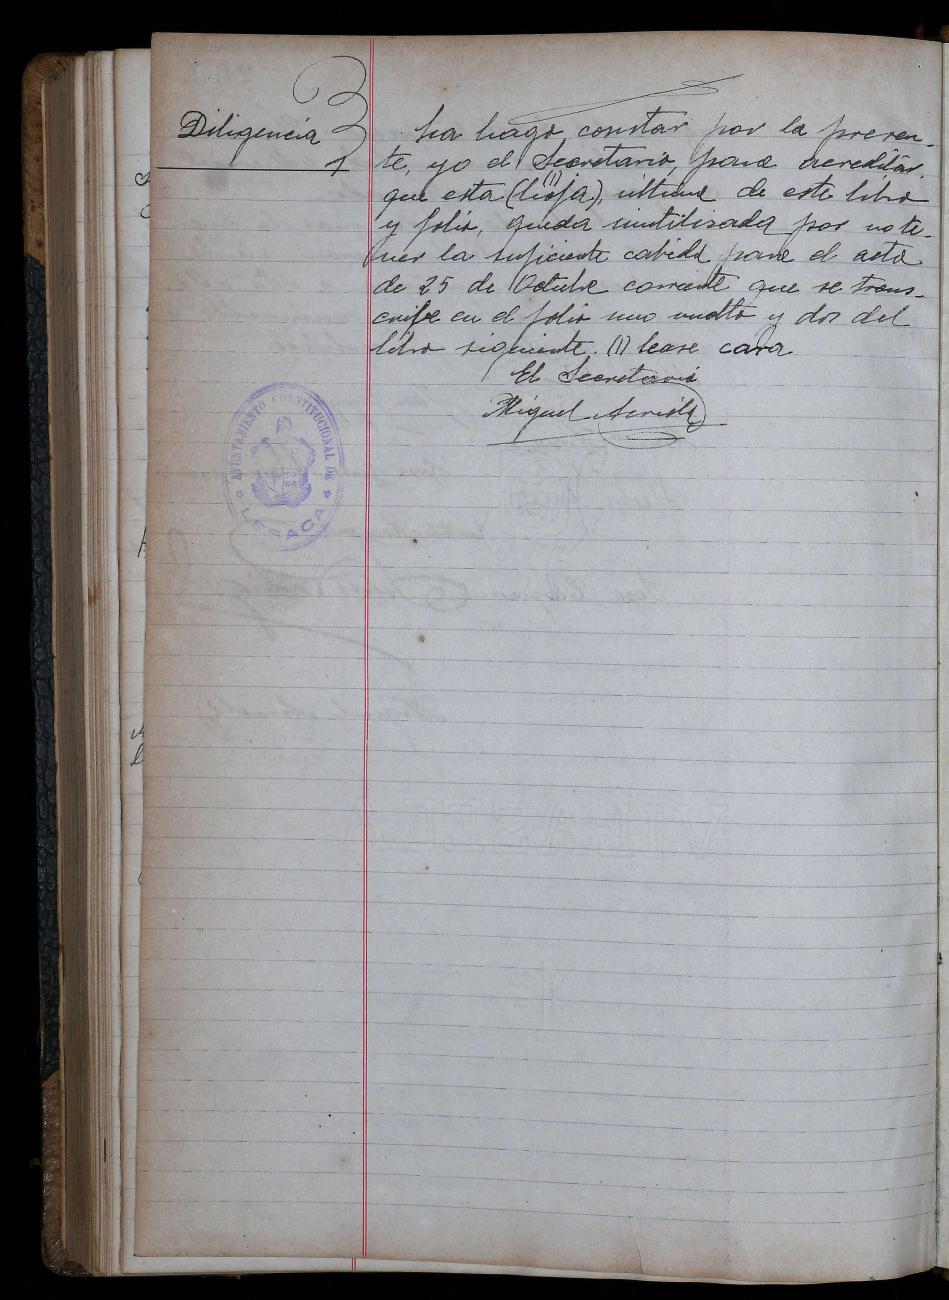 Diligencia
La hago constar por la presen-
te, yo el Secretario, para acreditar
que esta (hoja)(1), última de este libro
y folio, queda inutilizada por no te-
ner la suficiente cabida para el acta
de 25 de Octubre corriente que se trans-
cribe en el folio uno vuelto y dos del
libro siguiente. (1) lease cara
El Secretario
Miguel
AYUNTAMIENTO CONSTITUCIONAL DE
LESACA